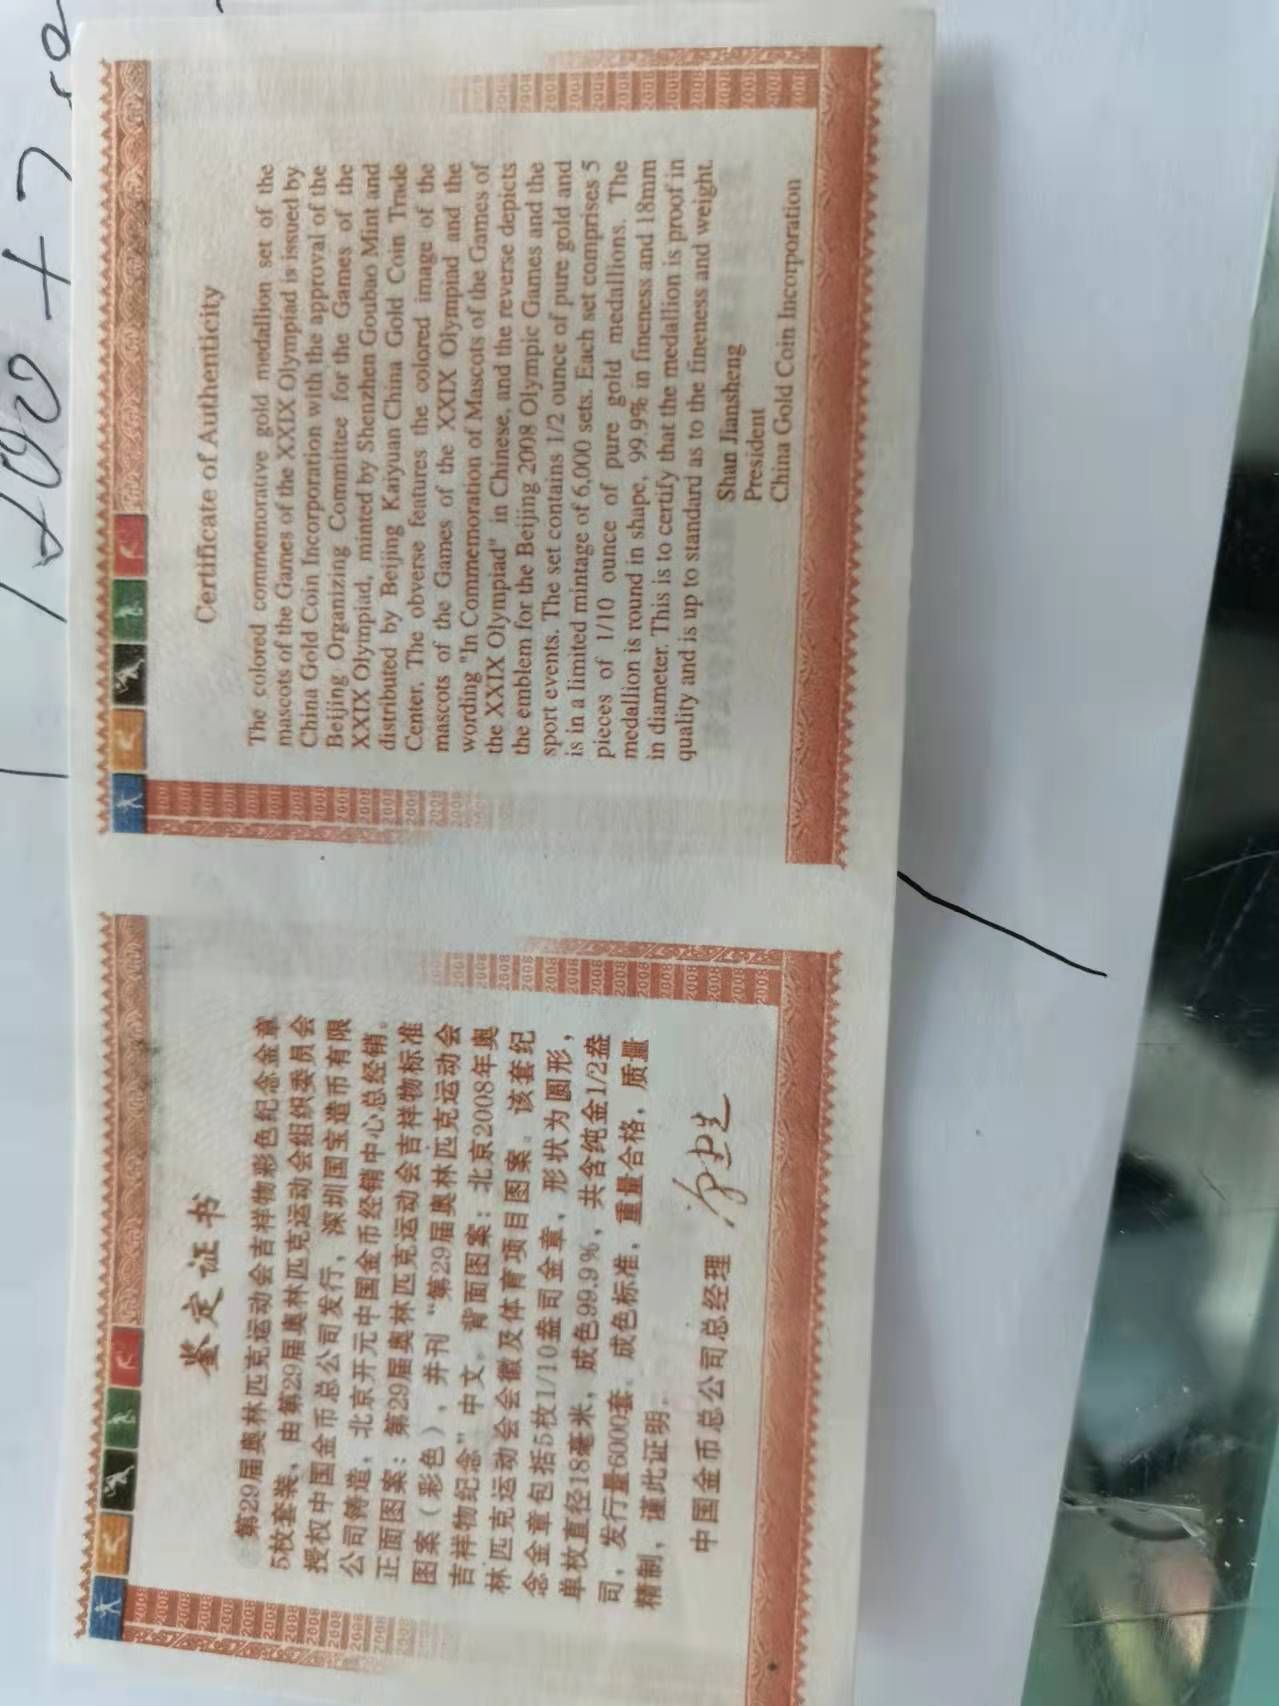 鉴定证书
第29届奥林匹克运动会吉祥物彩色纪念金章
5枚套装，由第29届奥林匹克运动会组织委员会
授权中国金币总公司发行，深圳国宝造币有限
公司铸造，北京开元中国金币经销中心总经销。
正面图案：第29届奥林匹克运动会吉祥物标准
图案（彩色），并刊“第29届奥林匹克运动会
吉祥物纪念”中文。背面图案：北京2008年奥
林匹克运动会会徽及体育项目图案。该套纪
念金章包括5枚1/10盎司金章，形状为圆形，
单枚直径18毫米，成色99.9%，共含纯金1/2盎
司，发行量6000套。成色标准，重量合格，质量
精制，谨此证明。
中国金币总公司总经理
Certificate of Authenticity
The colored commemorative gold medallion set of the
mascots of the Games of the XXIX Olympiad is issued by
China Gold Coin Incorporation with the approval of the
Beijing Organizing Committee for the Games of the
XXIX Olympiad, minted by Shenzhen Goubao Mint and
distributed by Beijing Kaiyuan China Gold Coin Trade
Center. The obverse features the colored image of the
mascots of the Games of the XXIX Olympiad and the
wording "In Commemoration of Mascots of the Games of
the XXIX Olympiad" in Chinese, and the reverse depicts
the emblem for the Beijing 2008 Olympic Games and the
sport events. The set contains 1/2 ounce of pure gold and
is in a limited mintage of 6,000 sets. Each set comprises 5
pieces of 1/10 ounce of pure gold medallions. The
medallion is round in shape, 99.9% in fineness and 18mm
in diameter. This is to certify that the medallion is proof in
quality and is up to standard as to the fineness and weight.
Shan Jiansheng
President
China Gold Coin Incorporation